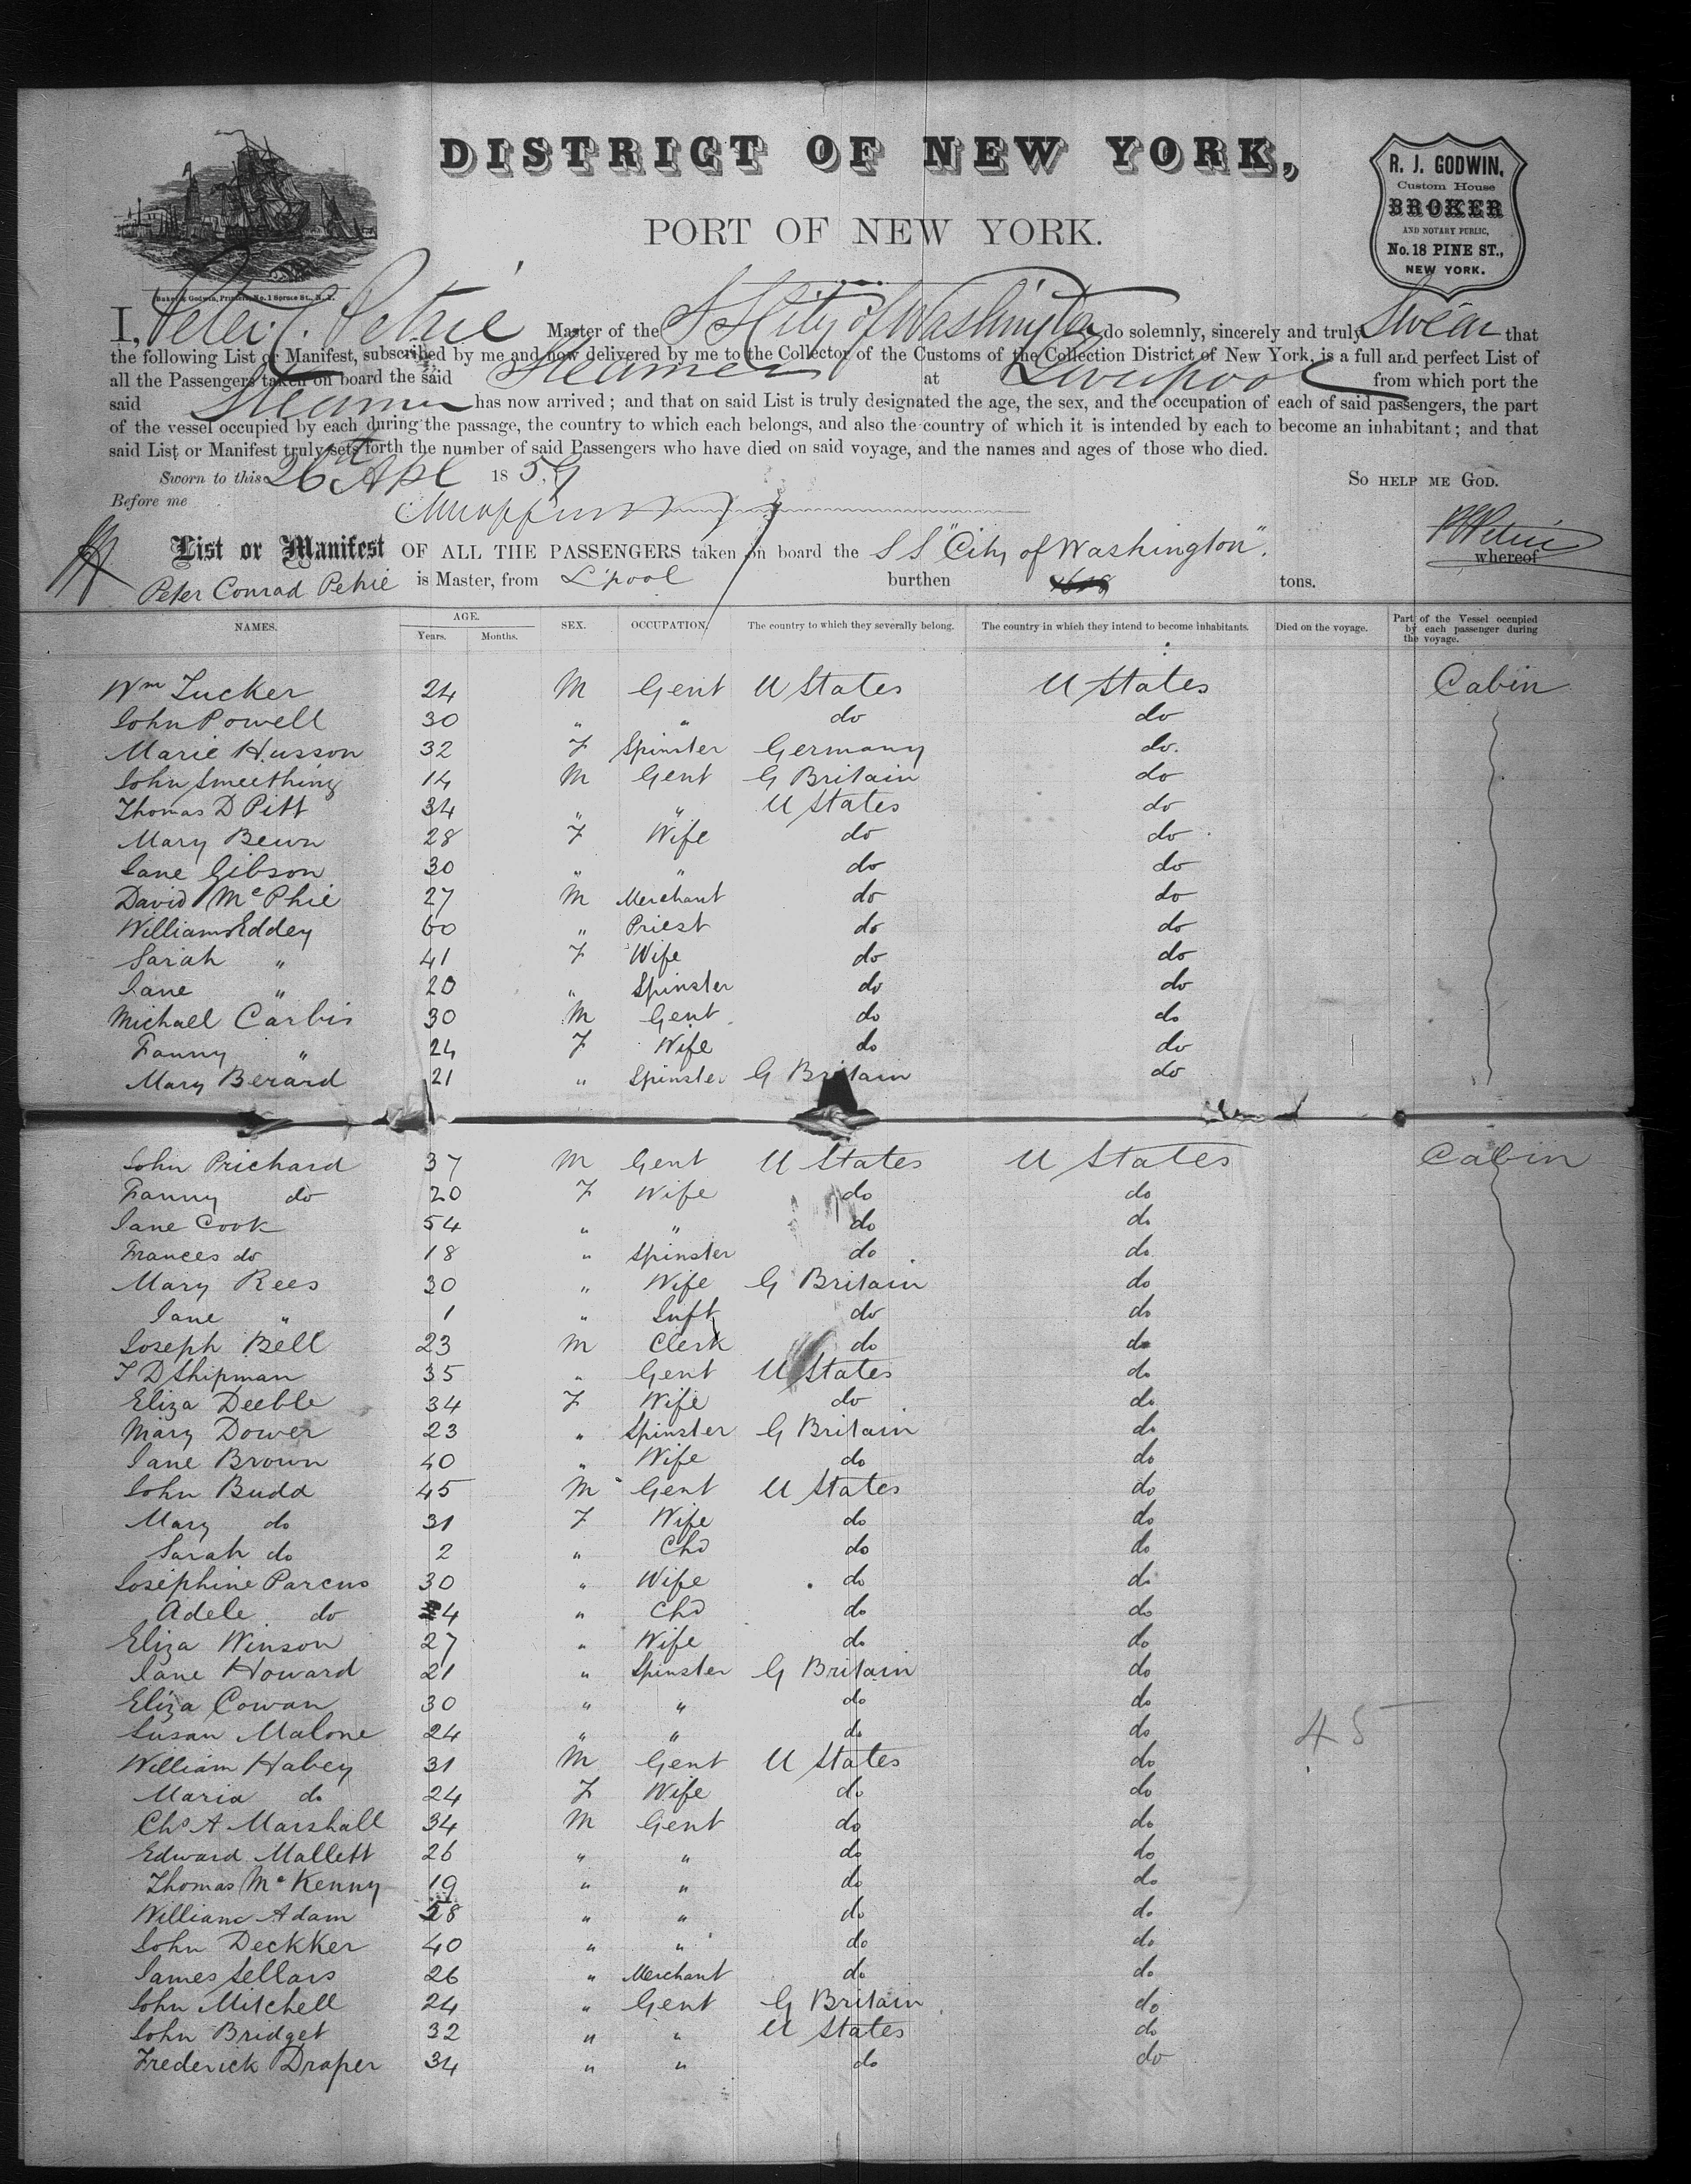 DISTRICT OF NEW YORK,
PORT OF NEW YORK.
R. J. GODWIN,
Custom House
BROKER
AND NOTARY PUBLIC,
No. 18 PINE ST.,
NEW YORK.
Baker & Godwin, Printers, No. 1 Spruce St., N. Y.
I, Peter C. Petrie Master of the SS City of Washington do solemnly, sincerely and truly Swear that
the following List or Manifest, subscribed by me and now delivered by me to the Collector of the Customs of the Collection District of New York, is a full and perfect List of
all the Passengers taken on board the said Steamer at Liverpool from which port the
said Steamer has now arrived; and that on said List is truly designated the age, the sex, and the occupation of each of said passengers, the part
of the vessel occupied by each during the passage, the country to which each belongs, and also the country of which it is intended by each to become an inhabitant; and that
said List or Manifest truly sets forth the number of said Passengers who have died on said voyage, and the names and ages of those who died.
Sworn to this 26 Apl 1859 So HELP ME GOD.
Before me
PCPetrie
List or Manifest OF ALL THE PASSENGERS taken on board the SS "City of Washington". whereof
Peter Conrad Petrie is Master, from L'pool burthen tons.
NAMES. AGE. Years. Months. SEX. OCCUPATION. The country to which they severally belong. The country in which they intend to become inhabitants. Died on the voyage. Part of the Vessel occupied by each passenger during the voyage.
Wm Tucker 24 M Gent U States U States Cabin
John Powell 30 " " do do
Marie Husson 32 F Spinster Germany do.
John Smeething 14 M Gent G Britain do
Thomas D Pitt 34 " " U States do
Mary Bewn 28 F Wife do do
Jane Gibson 30 " " do do
David McPhie 27 M Merchant do do
William Eddey 60 " Priest do do
Sarah " 41 F Wife do do
Jane " 20 " Spinster do do
Michael Carbis 30 M Gent do do
Fanny " 24 F Wife do do
Mary Berard 21 " Spinster G Britain do
John Prichard 37 M Gent U States U States Cabin
Fanny do 20 F Wife do do
Jane Cook 54 " " do do
Frances do 18 " Spinster do do
Mary Rees 30 " Wife G Britain do
Jane " 1 " Inft do do
Joseph Bell 23 M Clerk do do
T D Shipman 35 " Gent U States do
Eliza Deeble 34 F Wife do do
Mary Dower 23 " Spinster G Britain do
Jane Brown 40 " Wife do do
John Budd 45 M Gent U States do
Mary do 31 F Wife do do
Sarah do 2 " Chd do do
Josephine Parcus 30 " Wife do do
Adele do 4 " Chd do do
Eliza Winson 27 " Wife do do
Jane Howard 21 " Spinster G Britain do
Eliza Cowan 30 " " do do
Susan Malone 24 " " do do 45
William Habey 31 M Gent U States do
Maria do 24 F Wife do do
Chs A Marshall 34 M Gent do do
Edward Mallett 26 " " do do
Thomas McKenny 19 " " do do
William Adam 58 " " do do
John Deckker 40 " " do do
James Sellars 26 " Merchant do do
John Mitchell 24 " Gent G Britain do
John Bridget 32 " " U States do
Frederick Draper 34 " " do do